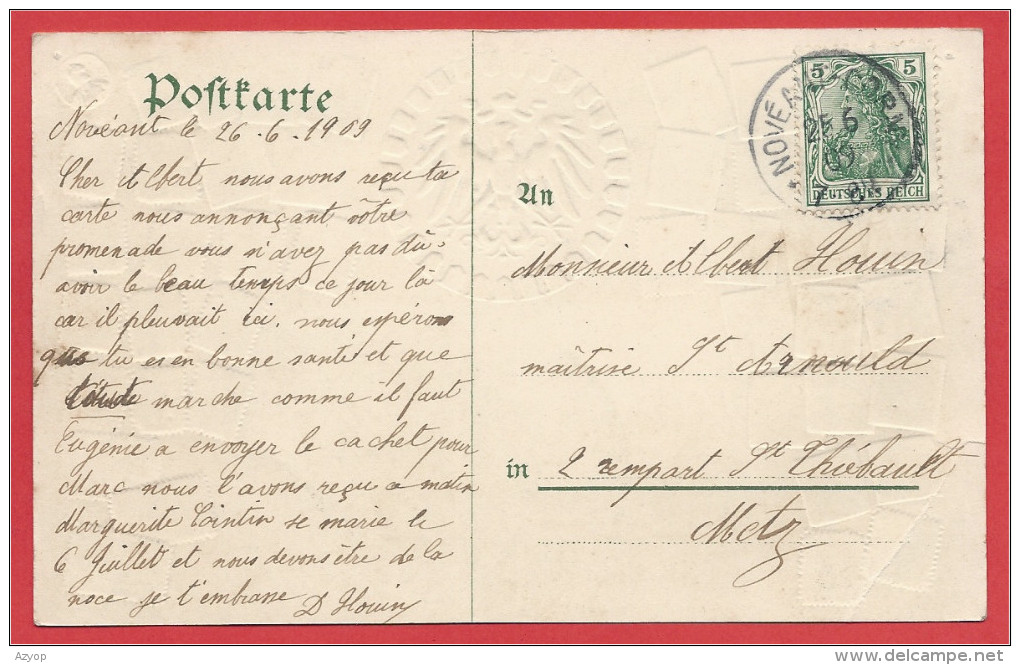 Postkarte
Novéant le 26.6.1909
Cher Albert nous avons reçu ta
carte nous annonçant vôtre
promenade vous n'avez pas dû
avoir le beau temps ce jour là
car il pleuvait ici. nous espérons
que tu es en bonne santé et que
l'étude marche comme il faut
Eugénie a envoyer le cachet pour
Marc nous l'avons reçu a matin
Marguerite Cointin se marie le
6 Juillet et nous devons être de la
noce je t'embrasse D Houin
5 5
DEUTSCHES REICH
An
Monsieur Albert Houin
maîtrise St Arnould
in 2 rempart St Thiébault
Metz
Azyop
www.delcampe.net